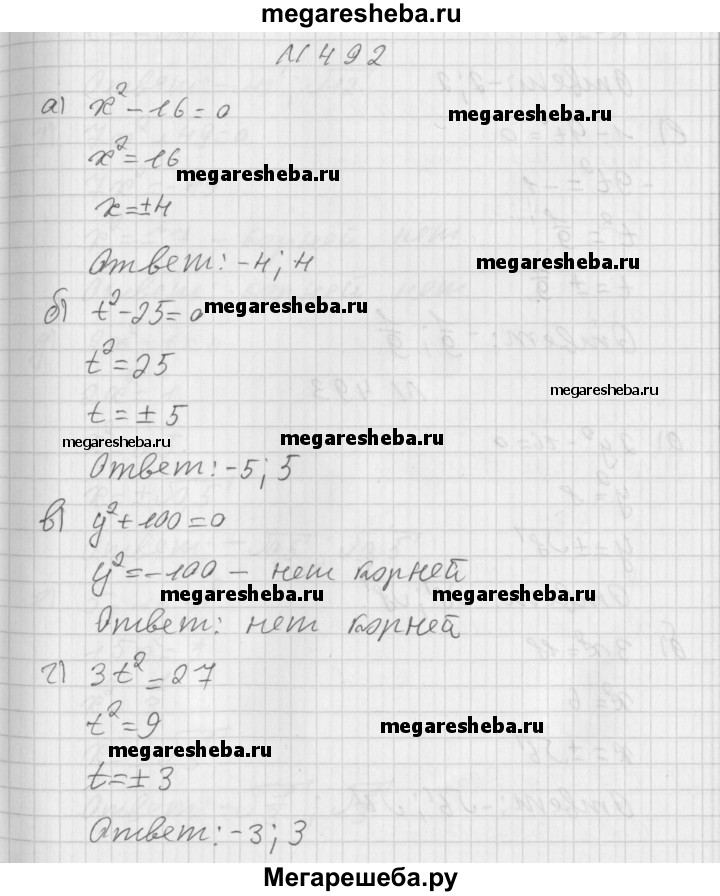 megaresheba.ru
№492
а) x² - 16 = 0
megaresheba.ru
x² = 16
megaresheba.ru
x = ±4
Ответ: -4; 4
megaresheba.ru
б) t² - 25 = 0
megaresheba.ru
t² = 25
megaresheba.ru
t = ± 5
megaresheba.ru
megaresheba.ru
Ответ: -5; 5
в) y² + 100 = 0
y² = -100 - нет корней
megaresheba.ru
megaresheba.ru
Ответ: нет корней
г) 3t² = 27
t² = 9
megaresheba.ru
megaresheba.ru
t = ± 3
Ответ: -3; 3
Мегарешеба.ру